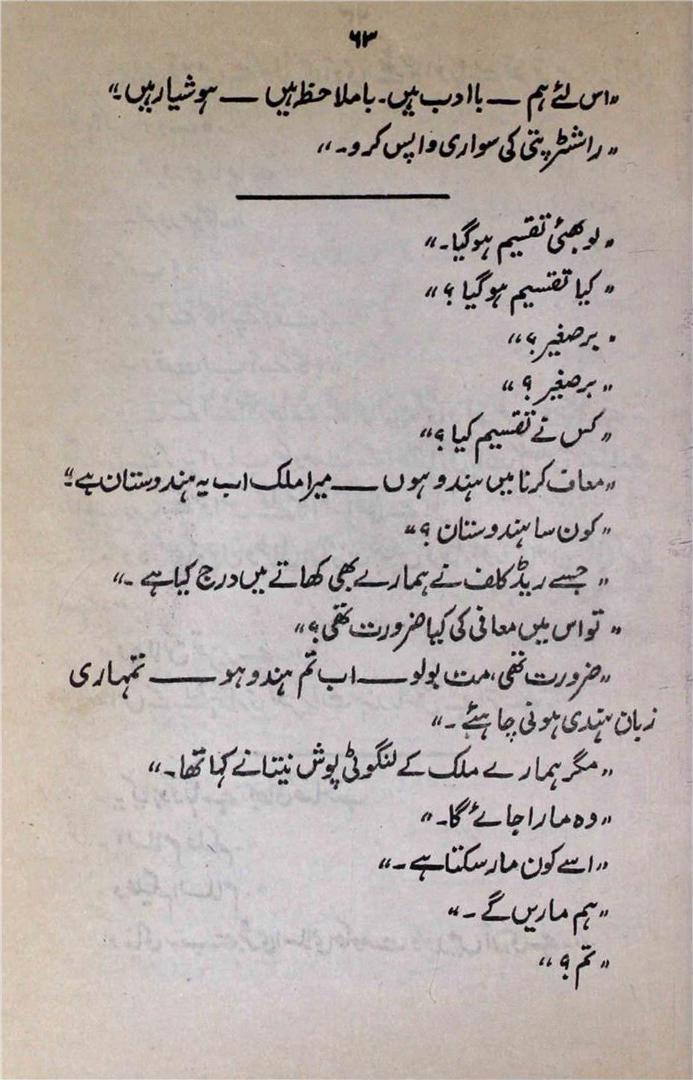 ۶۳
"اس لئے ہم — باادب ہیں۔ باملاحظہ ہیں — ہوشیار ہیں۔"
"راشٹرپتی کی سواری واپس کرو۔"
"لو بھئی تقسیم ہوگیا۔"
"کیا تقسیم ہوگیا؟"
"برصغیر؟"
"برصغیر؟"
"کس نے تقسیم کیا؟"
"معاف کرنا میں ہندو ہوں — میرا ملک اب یہ ہندوستان ہے۔"
"کون سا ہندوستان؟"
"جسے ریڈ کلف نے ہمارے بھی کھاتے میں درج کیا ہے۔"
"تو اس میں معافی کی کیا ضرورت تھی؟"
"ضرورت تھی، مت بولو — اب تم ہندو ہو — تمہاری
زبان ہندی ہونی چاہئے۔"
"مگر ہمارے ملک کے لنگوٹی پوش نیتا نے کہا تھا۔"
"وہ مارا جائے گا۔"
"اسے کون مار سکتا ہے۔"
"ہم ماریں گے۔"
"تم؟"